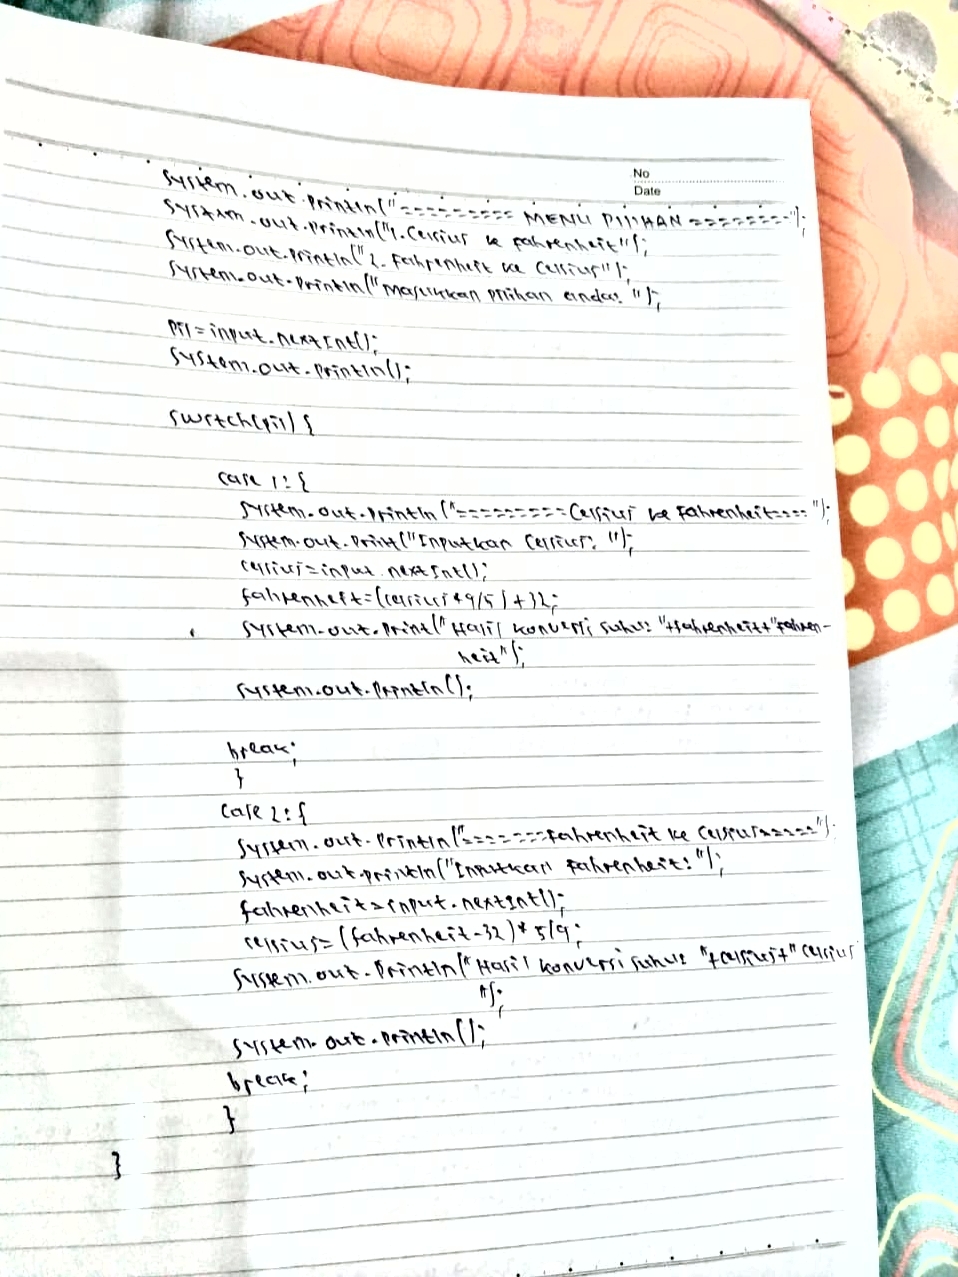 No
Date
System.out.println("========= MENU PILIHAN ========");
System.out.println("1. Celsius ke fahrenheit");
System.out.println("2. Fahrenheit ke Celsius");
System.out.println("Masukkan pilihan anda: ");
pil=input.nextInt();
System.out.println();
switch(pil) {
case 1: {
System.out.println("========= Celsius ke Fahrenheit====");
System.out.print("Inputkan Celsius: ");
celsius=input.nextInt();
fahrenheit=(celsius*9/5)+32;
System.out.print("Hasil konversi suhu: "+fahrenheit+"Fahren-
heit");
System.out.println();
break;
}
case 2: {
System.out.println("=======Fahrenheit ke Celsius=====");
System.out.println("Inputkan Fahrenheit: ");
fahrenheit=input.nextInt();
celsius=(fahrenheit-32)*5/9;
System.out.println("Hasil konversi suhu: "+celsius+" Celsius
");
System.out.println();
break;
}
}